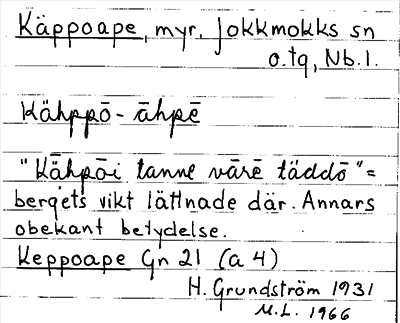 Käppoape, myr. Jokkmokks sn
o.tg, Nb.l.
Kähppō - āhpē
"Kāhpōi tanne vārē täddō" =
bergets vikt lättnade där. Annars
obekant betydelse.
Keppoape Gn 21 (a 4)
H. Grundström 1931
M.L. 1966